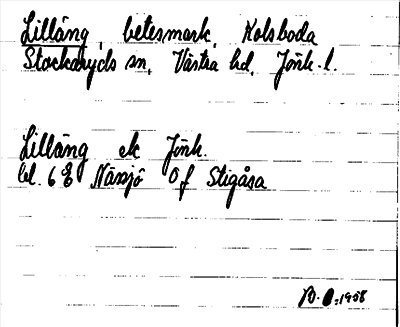 Lilläng, betesmark, Kolsboda
Stockaryds sn, Västra hd, Jönk. l.
Lilläng ek Jönk.
bl. 6 E Nässjö 0 f Stigåsa
1958